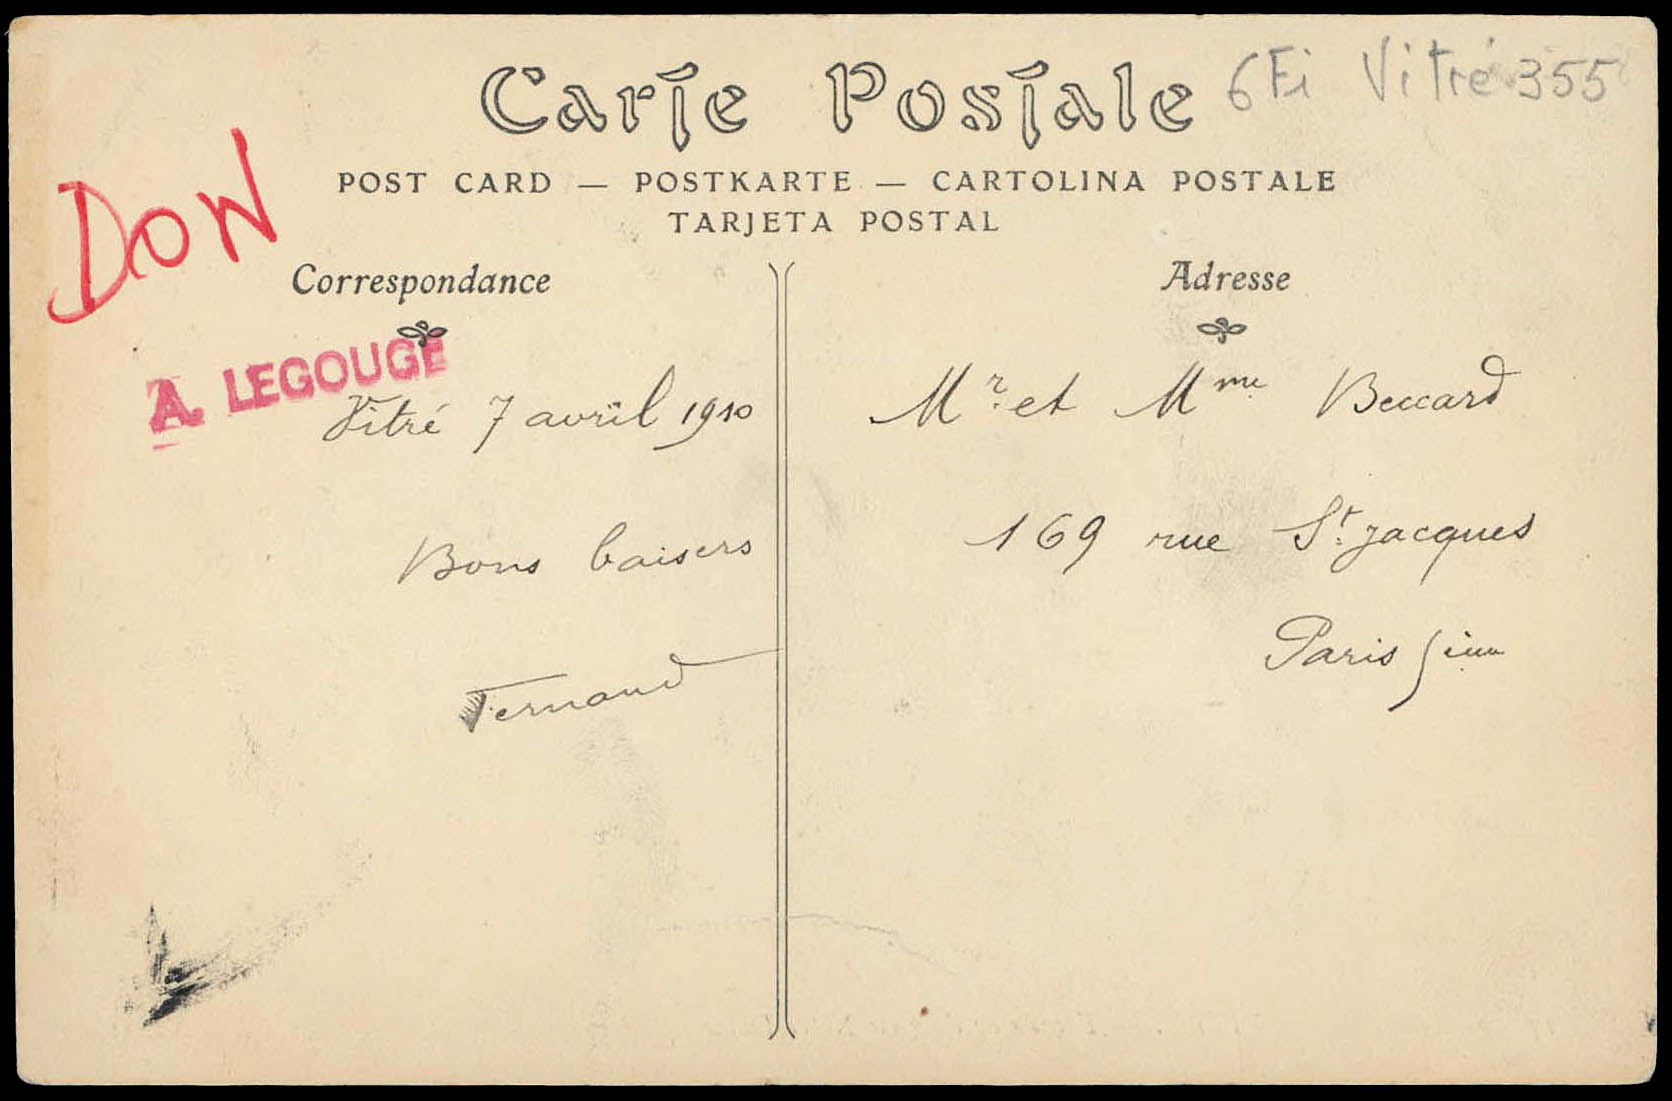 Carte Postale
6Fi Vitré 355
POST CARD — POSTKARTE — CARTOLINA POSTALE
TARJETA POSTAL
DON
Correspondance
A. LEGOUGE
Vitré 7 avril 1910
Bons baisers
Fernand
Adresse
Mr. et Mme Beccard
169 rue St. Jacques
Paris